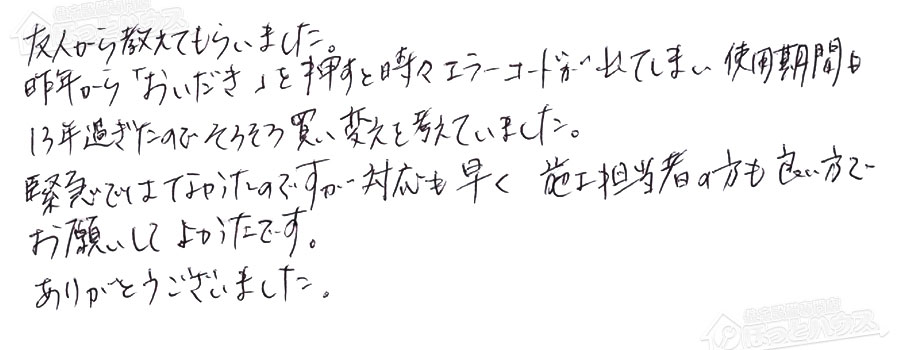 友人から教えてもらいました。
昨年から「おいだき」を押すと時々エラーコードが出てしまい 使用期間も
13年過ぎたのでそろそろ買い変えを考えていました。
緊急ではなかったのですが対応も早く 施工担当者の方も良い方で
お願いしてよかったです。
ありがとうございました。
ほっとハウス